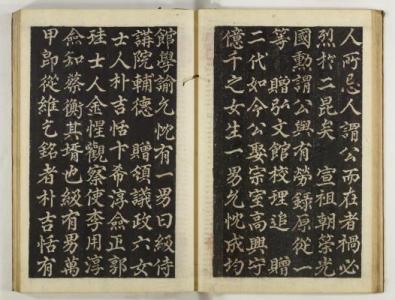 人所忌人謂公而在者禍必
烈於二昆矣 宣祖朝策光
國勳謂公與有勞錄原從一
等 贈弘文館校理追 贈
二代如今公娶宗室高興守
億千之女生一男允忱成均
館學諭允忱有一男曰級侍
講院輔德 贈領議政六女
士人朴吉恬卞希淳僉正郭
珪士人金惺觀察使李用淳
僉知蔡衡其婿也級有男萬
甲卽從維乞銘者朴吉恬有